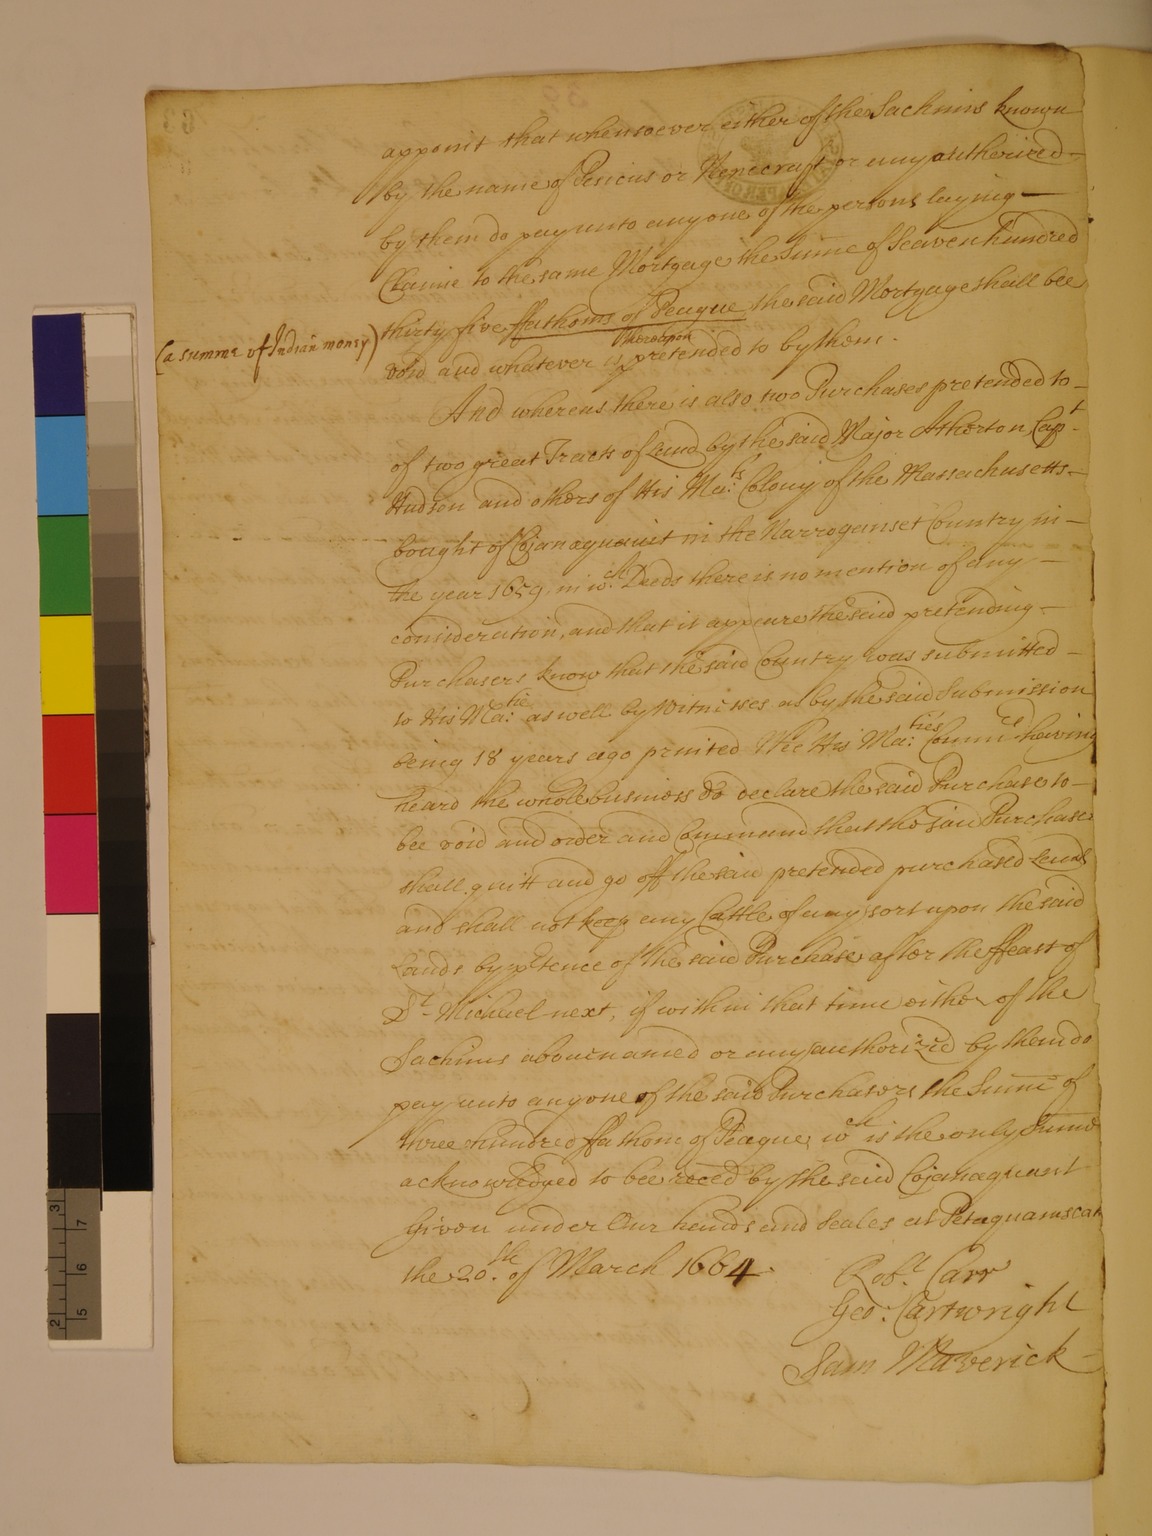 appoint that whensoever either of the Sachims known
by the name of Pesicus or Nenecraft or any authorized
by them do pay unto any one of the persons laying
Claime to the same Mortgage the Sume of Seaven hundred
thirty five ffathoms of Peague the said Mortgage shall bee
(a summe of Indian money)
void and whatever is pretended thereupon to by them.
And whereas there is also two Purchases pretended to
of two great Tracts of Land by the said Major Atherton Capt
Hudson and others of His Ma:ts Colony of the Massachusetts
bought of Cojanaquaint in the Narroganset Country in
the year 1659. in wch Deeds there is no mention of any
consideration, and that it appeare the said pretending
Purchasers know that the said Country was submitted
to His Ma:tie as well by Witnesses as by the said Submission
being 18 years ago printed Wee His Ma:ties Commrs having
heard the whole business do declare the said Purchase to
bee void and order and Command that the said Purchasers
shall quitt and go off the said pretended purchased Lands
and shall not keep any Cattle of any sort upon the said
Lands by ptence of the said Purchase after the ffeast of
St Michael next, if within that time either of the
Sachims abovenamed or any authorized by them do
pay unto any one of the said Purchasers the Sume of
three hundred ffathom of Peague, wch is the only Sume
acknowledged to bee reced by the said Cojanaquant
Given under Our hands and Seales at Petaquamscat
the 20.th of March 1664.
Robt. Carr
Geo: Cartwright
Sam Maverick